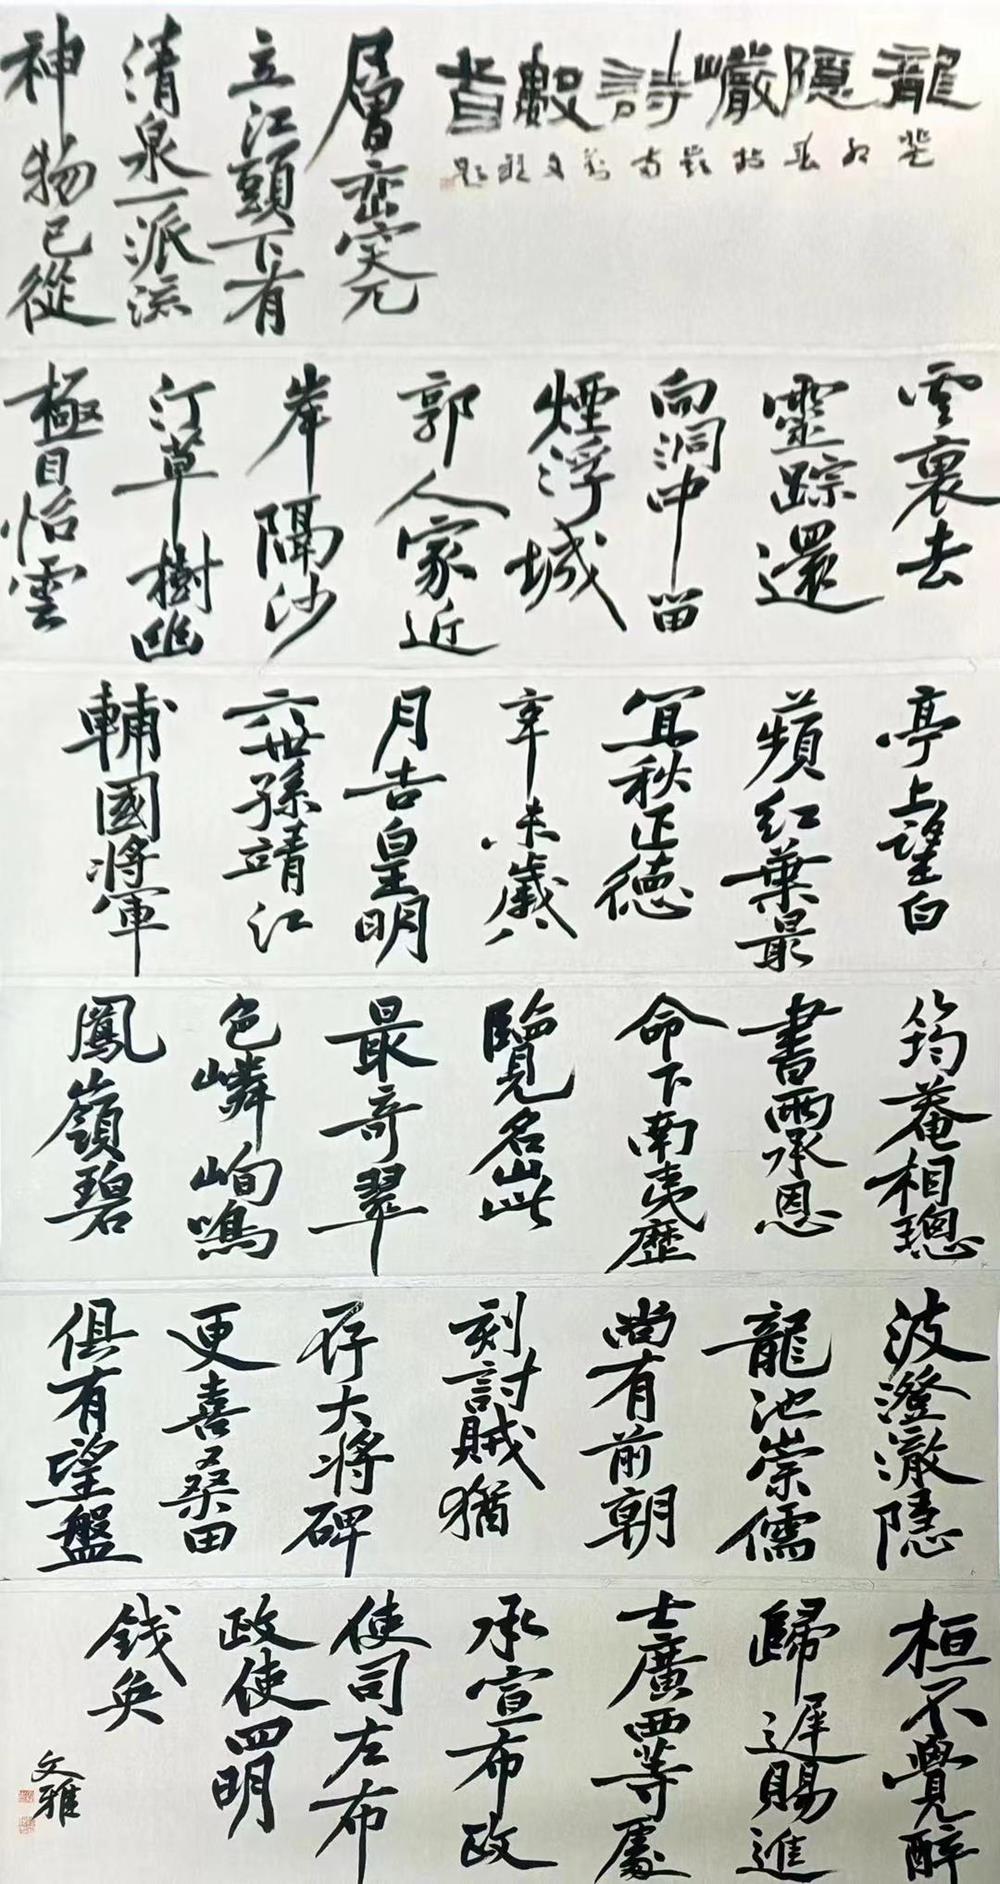 龍隱巖詩數首
層巒突兀
立江頭下有
清泉一派流
神物已從
雲裏去
靈踪還
向洞中留
煙浮城
郭人家近
岸隔沙
汀草樹幽
極目怡雲
亭上望白
蘋紅葉最
宜秋正德
辛未歲八
月吉皇明
六世孫靖江
輔國將軍
筠菴相璁
書兩承恩
命下南夷歷
覽名山此
最奇翠
色嶙峋鳴
鳳嶺碧
波澄澈隱
龍池崇儒
尚有前朝
刻討賊猶
存大將碑
更喜桑田
俱有望盤
桓不覺醉
歸遲賜進
士廣西等處
承宣布政
使司左布
政使四明
錢奐
文雅